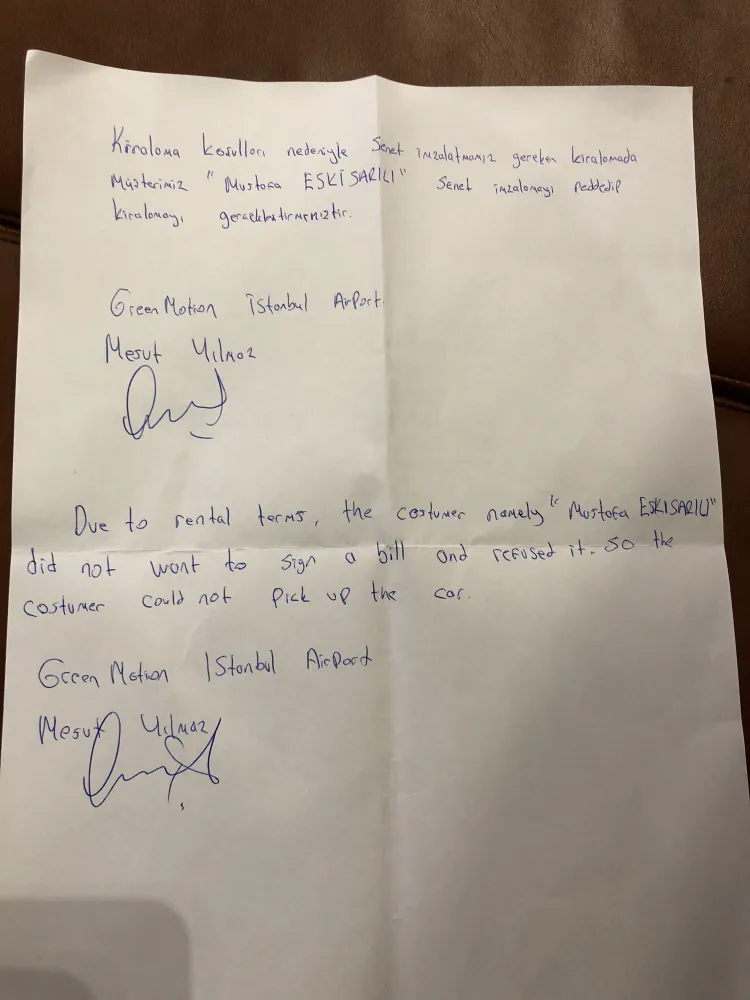 Kiralama kosulları nedeniyle Senet imzalatmamız gereken kiralamada
Müşterimiz "Mustafa ESKİSARILI" Senet imzalamayı reddedip
kiralamayı gerçekleştirmemiştir.
GreenMotion İstanbul AirPort
Mesut Yılmaz
Due to rental terms, the costumer namely "Mustafa ESKISARILI"
did not want to sign a bill and refused it. So the
costumer could not pick up the car.
Green Motion IStanbul AirPort
Mesut Yılmaz